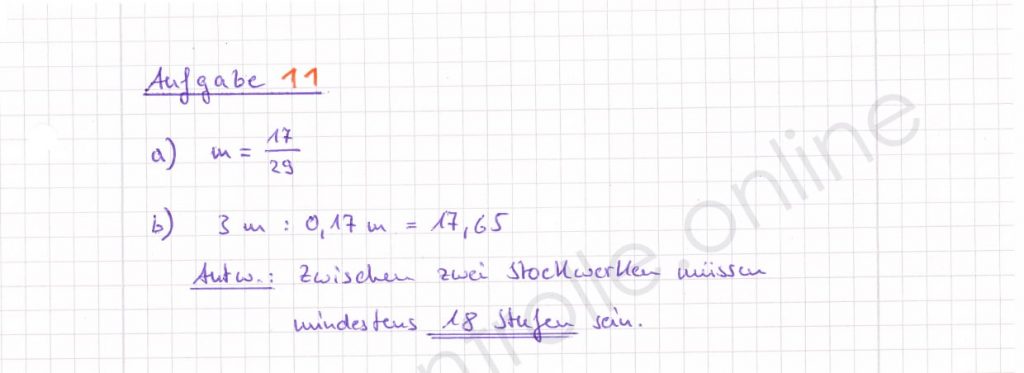 Aufgabe 11
a) m = 17/29
b) 3 m : 0,17 m = 17,65
Antw.: Zwischen zwei Stockwerken müssen
mindestens 18 Stufen sein.
ntrolle.online